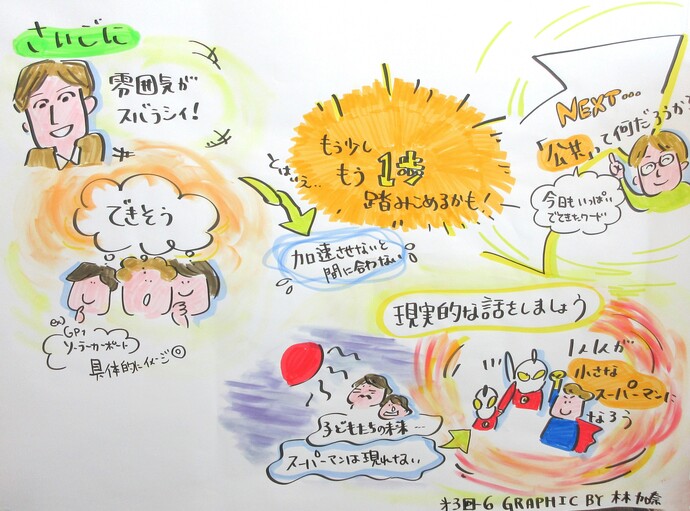 さいごに
雰囲気が
スバラシイ!
できそう
ex)
GP1
ソーラーカーボート
具体的にイメージ◎
とはいえ…
もう少し
もう1歩
踏みこめるかも!
加速させないと
間に合わない
NEXT...
「公共」って何だろうか?
今日もいっぱい
でてきたワード
現実的な話をしましょう
子どもたちの未来…
スーパーマンは現れない
1人1人が
小さな
スーパーマンに
なろう
GRAPHIC BY